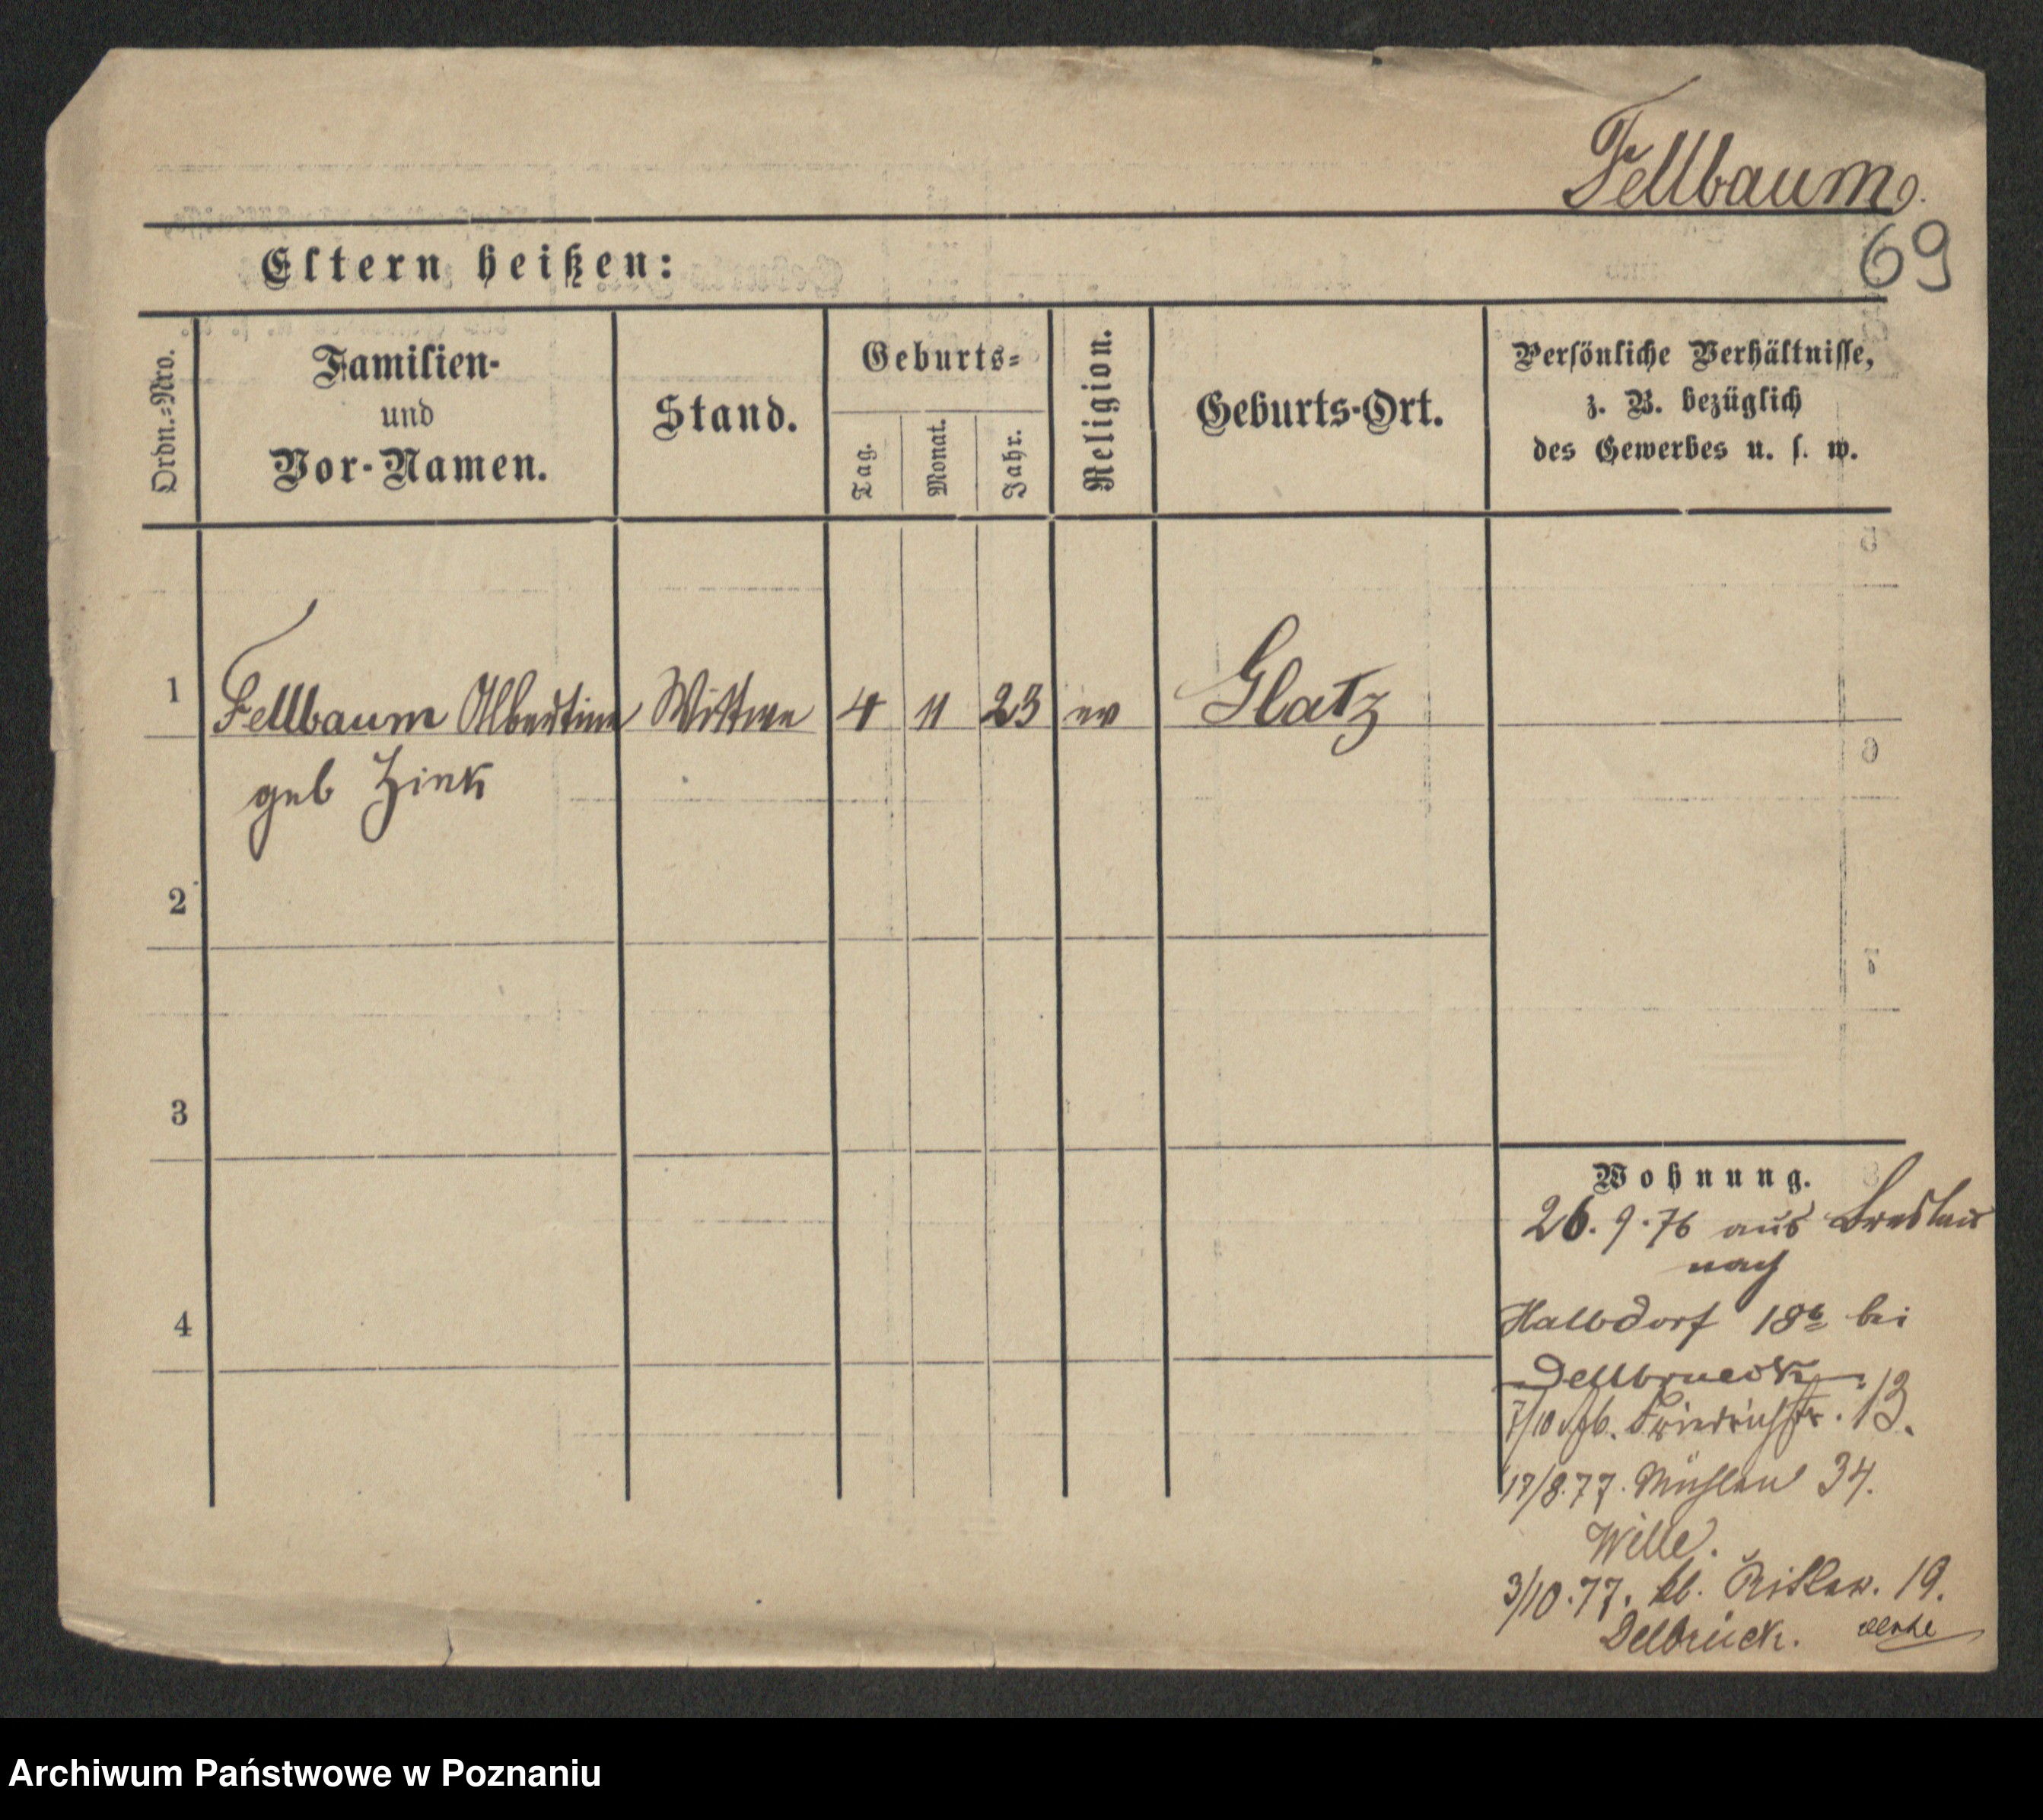 Fellbaum.
69
Eltern heißen:
Ordn.-Nro.
Familien-
und
Vor-Namen.
Stand.
Geburts-
Tag.
Monat.
Jahr.
Religion.
Geburts-Ort.
Persönliche Verhältnisse,
z. B. bezüglich
des Gewerbes u. s. w.
1 Fellbaum Albertine Wittwe 4 11 23 ev Glatz
geb Zink
2
3
4
Wohnung.
26. 9. 76 aus Breslau
nach
Halbdorf 18b bei
Dellbrueck.
7/10 76. Friedrichstr. 13.
17/8. 77. Mühlen 34.
Wille.
3/10. 77. kl. Ritter. 19.
Delbrück.
Archiwum Państwowe w Poznaniu